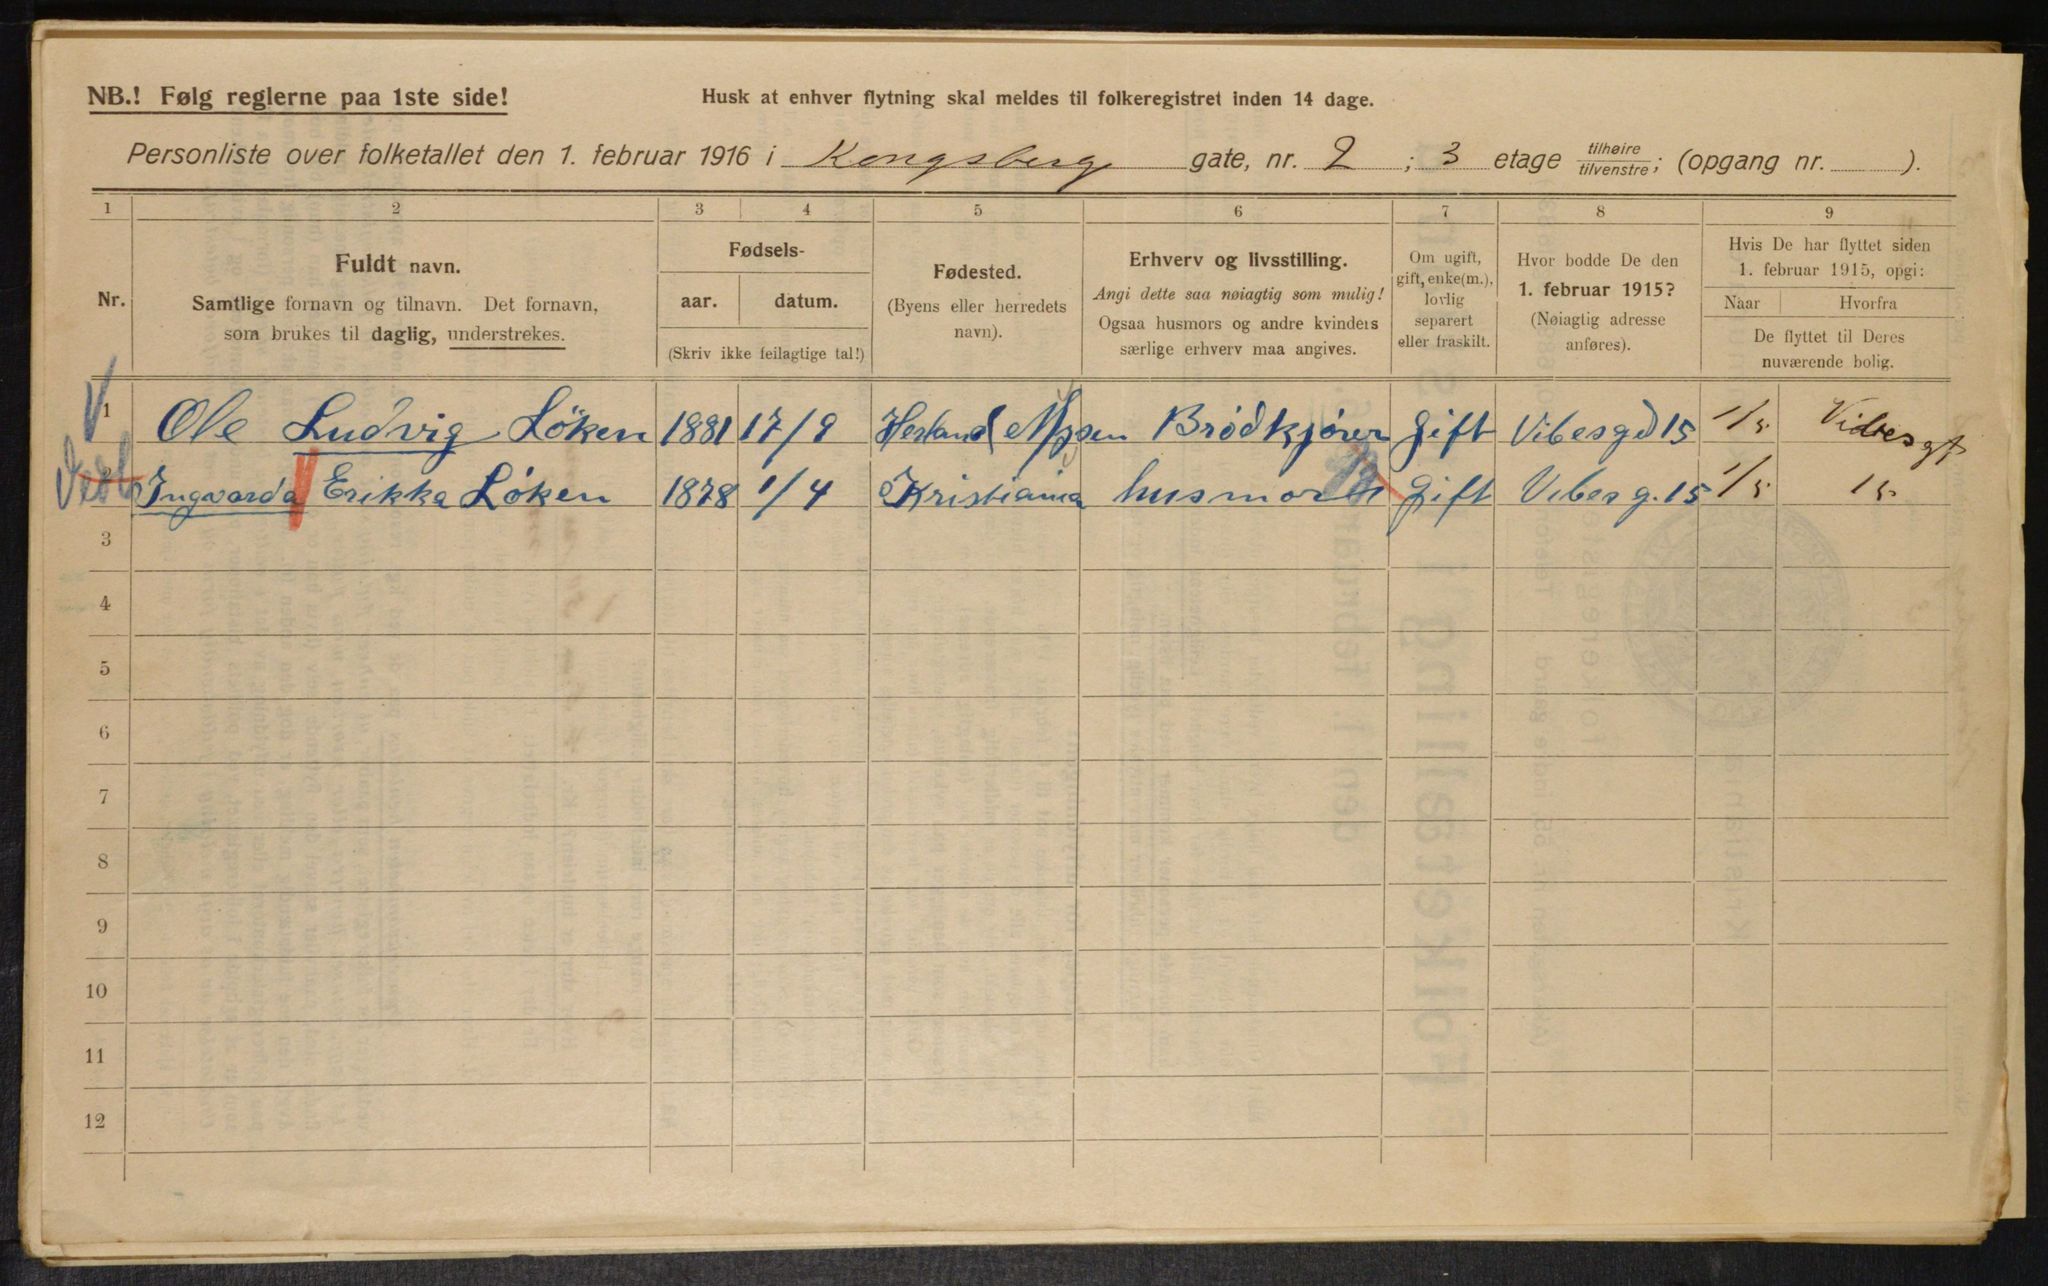 NB.! Følg reglerne paa 1ste side!
Husk at enhver flytning skal meldes til folkeregistret inden 14 dage.
Personliste over folketallet den 1. februar 1916 i Kongsberg gate, nr. 2; 3 etage tilhøire/tilvenstre; (opgang nr. ).
1 2 3 4 5 6 7 8 9
Nr.
Fuldt navn.
Samtlige fornavn og tilnavn. Det fornavn,
som brukes til daglig, understrekes.
Fødsels-
aar. datum.
(Skriv ikke feilagtige tal!)
Fødested.
(Byens eller herredets
navn).
Erhverv og livsstilling.
Angi dette saa nøiagtig som mulig!
Ogsaa husmors og andre kvinders
særlige erhverv maa angives.
Om ugift,
gift, enke(m.),
lovlig
separert
eller fraskilt.
Hvor bodde De den
1. februar 1915?
(Nøiagtig adresse
anføres).
Hvis De har flyttet siden
1. februar 1915, opgi:
Naar Hvorfra
De flyttet til Deres
nuværende bolig.
1 Ole Ludvig Løken 1881 17/9 Brødkjører gift Vibesgd 15 1/5 Vibesgt
2 Ingvarda Erikka Løken 1878 1/4 Kristiania husmor gift Vibesg. 15 1/5 15
3
4
5
6
7
8
9
10
11
12